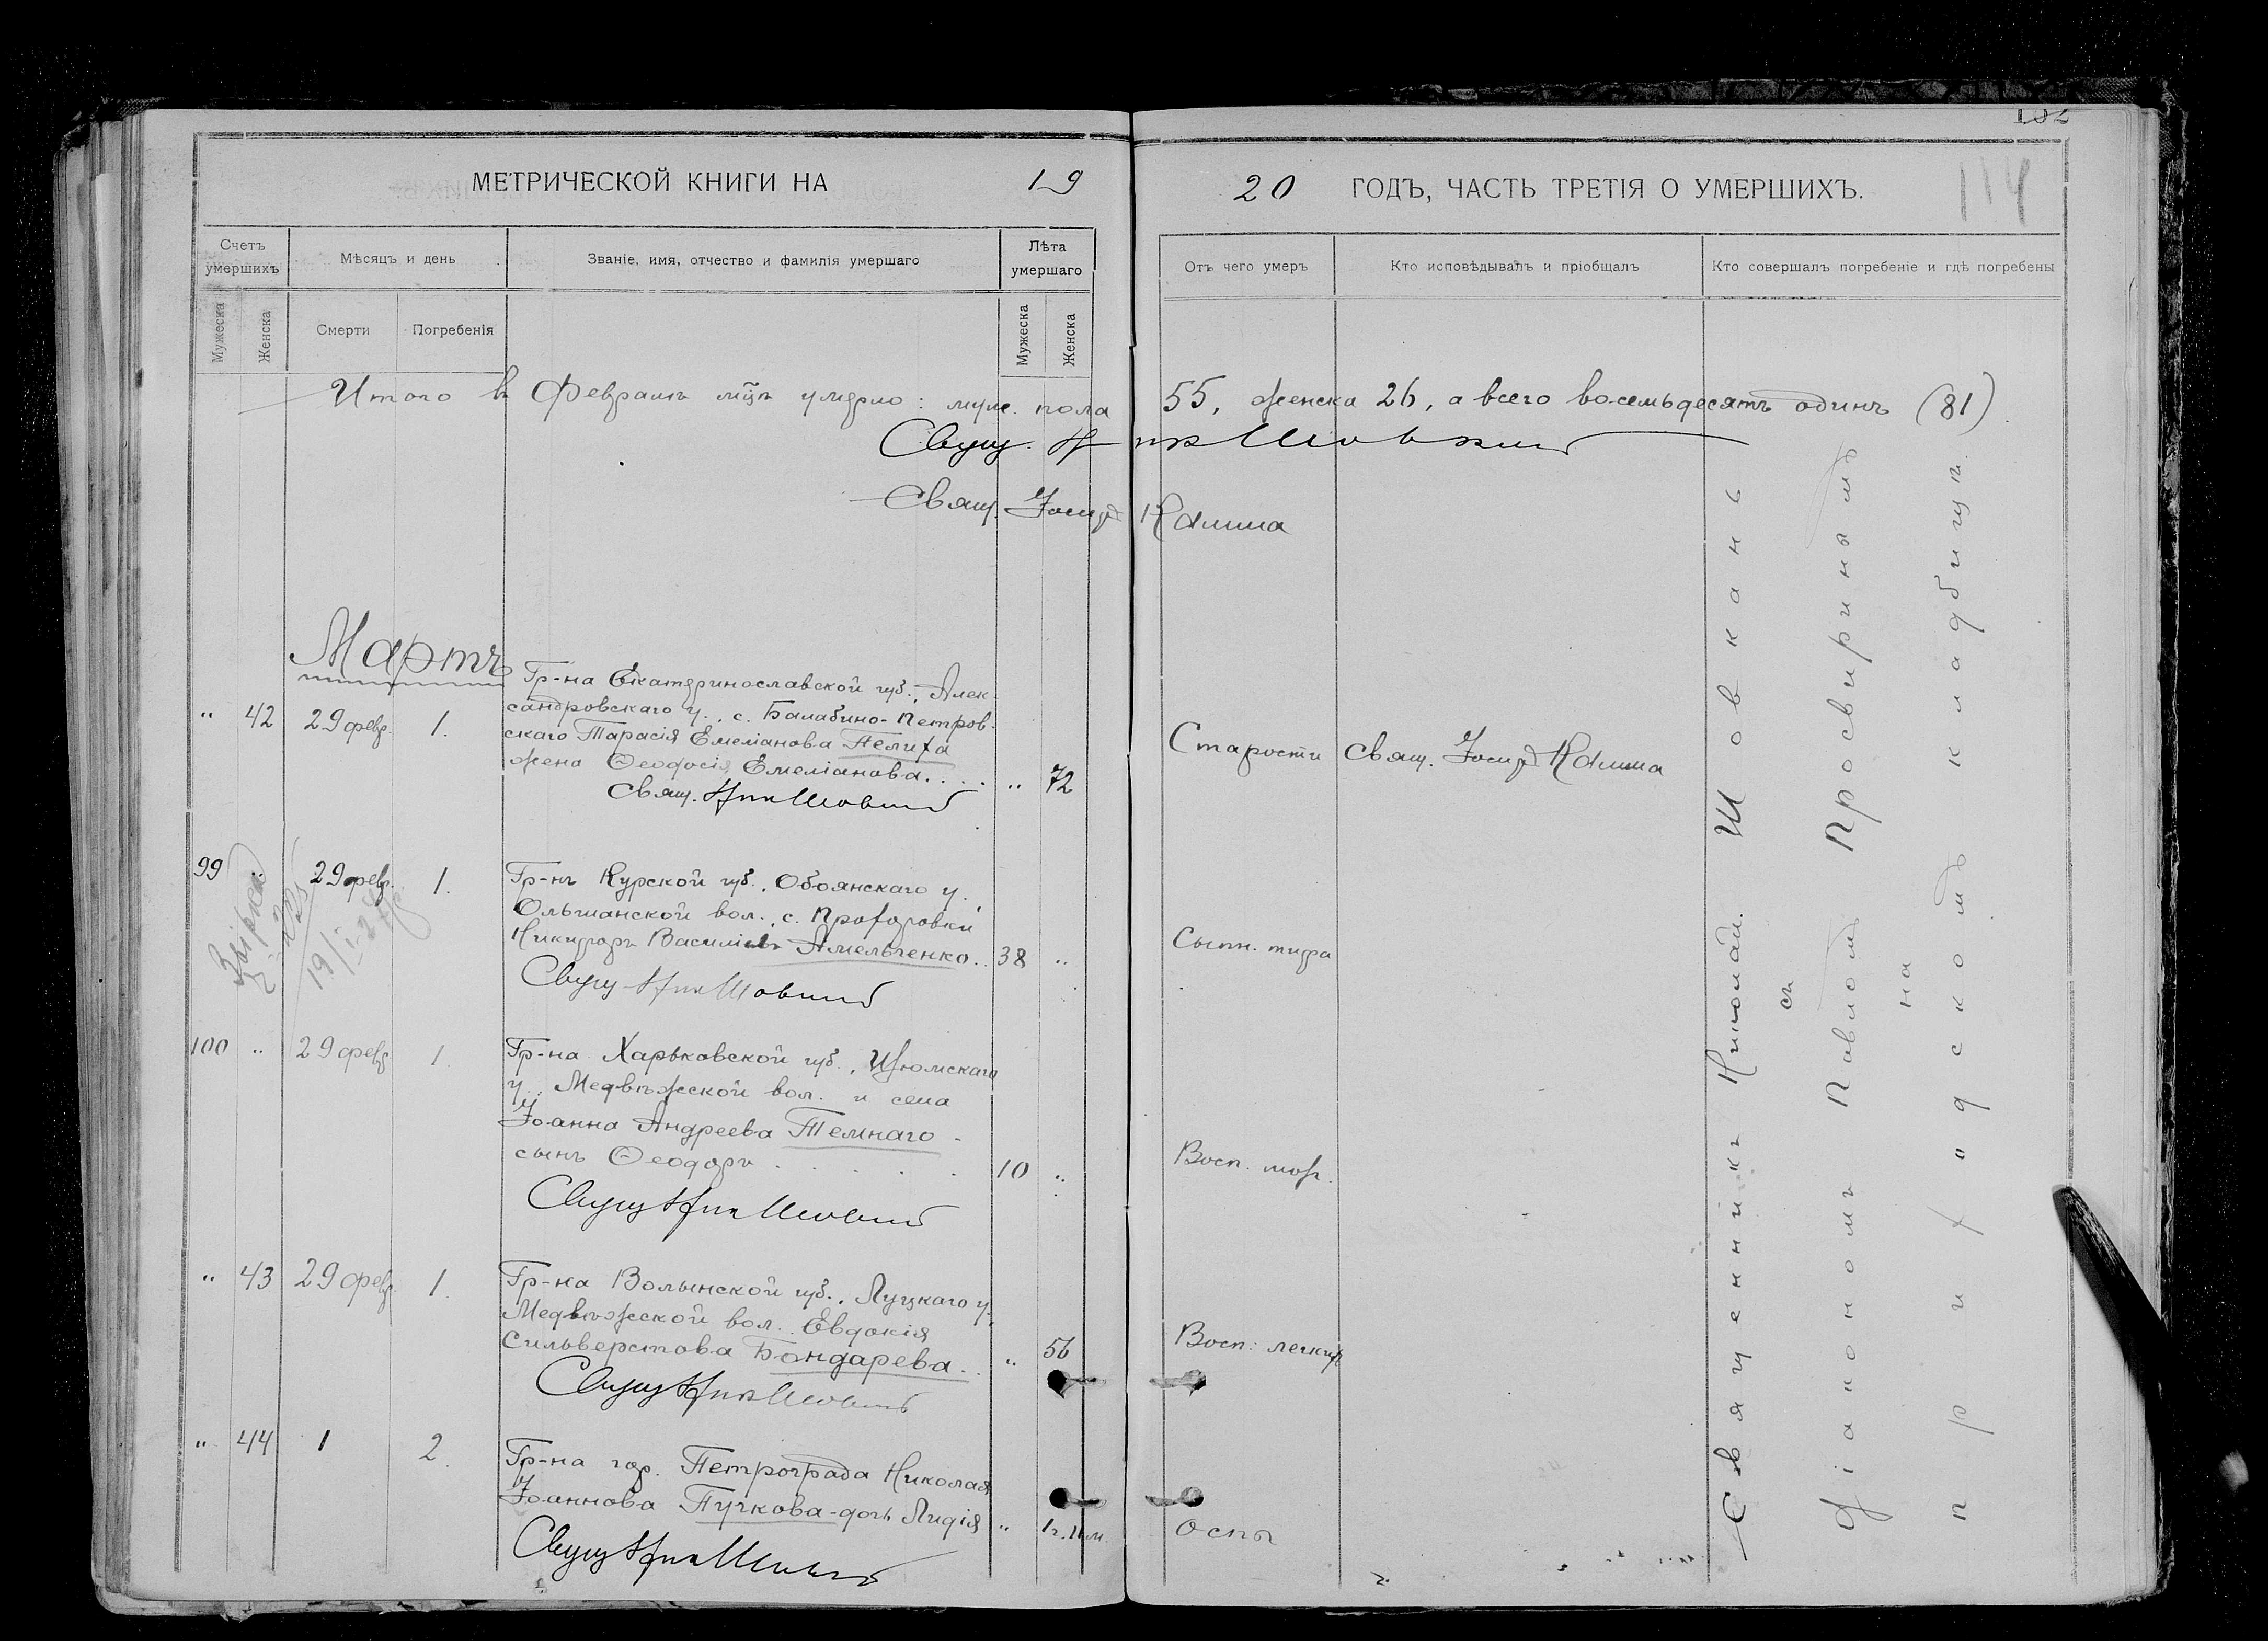 132
114
МЕТРИЧЕСКОЙ КНИГИ НА 19 20 ГОДЪ, ЧАСТЬ ТРЕТІЯ О УМЕРШИХЪ.
Счетъ умершихъ
Мѣсяцъ и день
Званіе, имя, отчество и фамилія умершаго
Лѣта умершаго
Отъ чего умеръ
Кто исповѣдывалъ и пріобщалъ
Кто совершалъ погребеніе и гдѣ погребены
Мужеска
Женска
Смерти
Погребенія
Мужеска
Женска
Итого въ Февралѣ мцѣ умерло: муж. пола 55, женска 26, а всего восемьдесятъ одинъ (81)
Свящ. Ник Шовкан
Свящ. Іосифъ Калина
Мартъ
" 42 29 февр. 1.
Гр-на Екатеринославской губ., Алек-
сандровскаго у., с. Балабино-Петров-
скаго Тарасія Емеліанова Пелиха
жена Ѳеодосія Емеліанова.... " 72
Старости
Свящ. Іосифъ Калина
Свящ. Ник Шовкан
99 " 29 февр. 1.
Гр-нъ Курской губ., Обоянскаго у.,
Ольшанской вол., с. Прохоровки
Никифоръ Василіевъ Амельченко.. 38 "
Сыпн. тифа
Свящ Ник Шовкан
19/I-28
100 " 29 февр. 1.
Гр-на Харьковской губ., Изюмскаго
у., Медвѣжской вол. и села
Іоанна Андреева Темнаго -
сынъ Ѳеодоръ . . . . . 10 "
Восп. мозг.
Свящ Ник Шовкан
" 43 29 февр. 1.
Гр-на Волынской губ., Луцкаго у.,
Медвѣжской вол. Евдокія
Сильверстова Бондарева. . " 56
Восп. легких
Свящ Ник Шовкан
" 44 1 2.
Гр-на гор. Петрограда Николая
Іоаннова Пучкова-дочь Лидія " 1г.11м.
Оспы
Свящ Ник Шовкан
Священникъ Николай Шовкань
съ
діакономъ Павломъ Просвиринымъ
на
приходскомъ кладбищѣ.